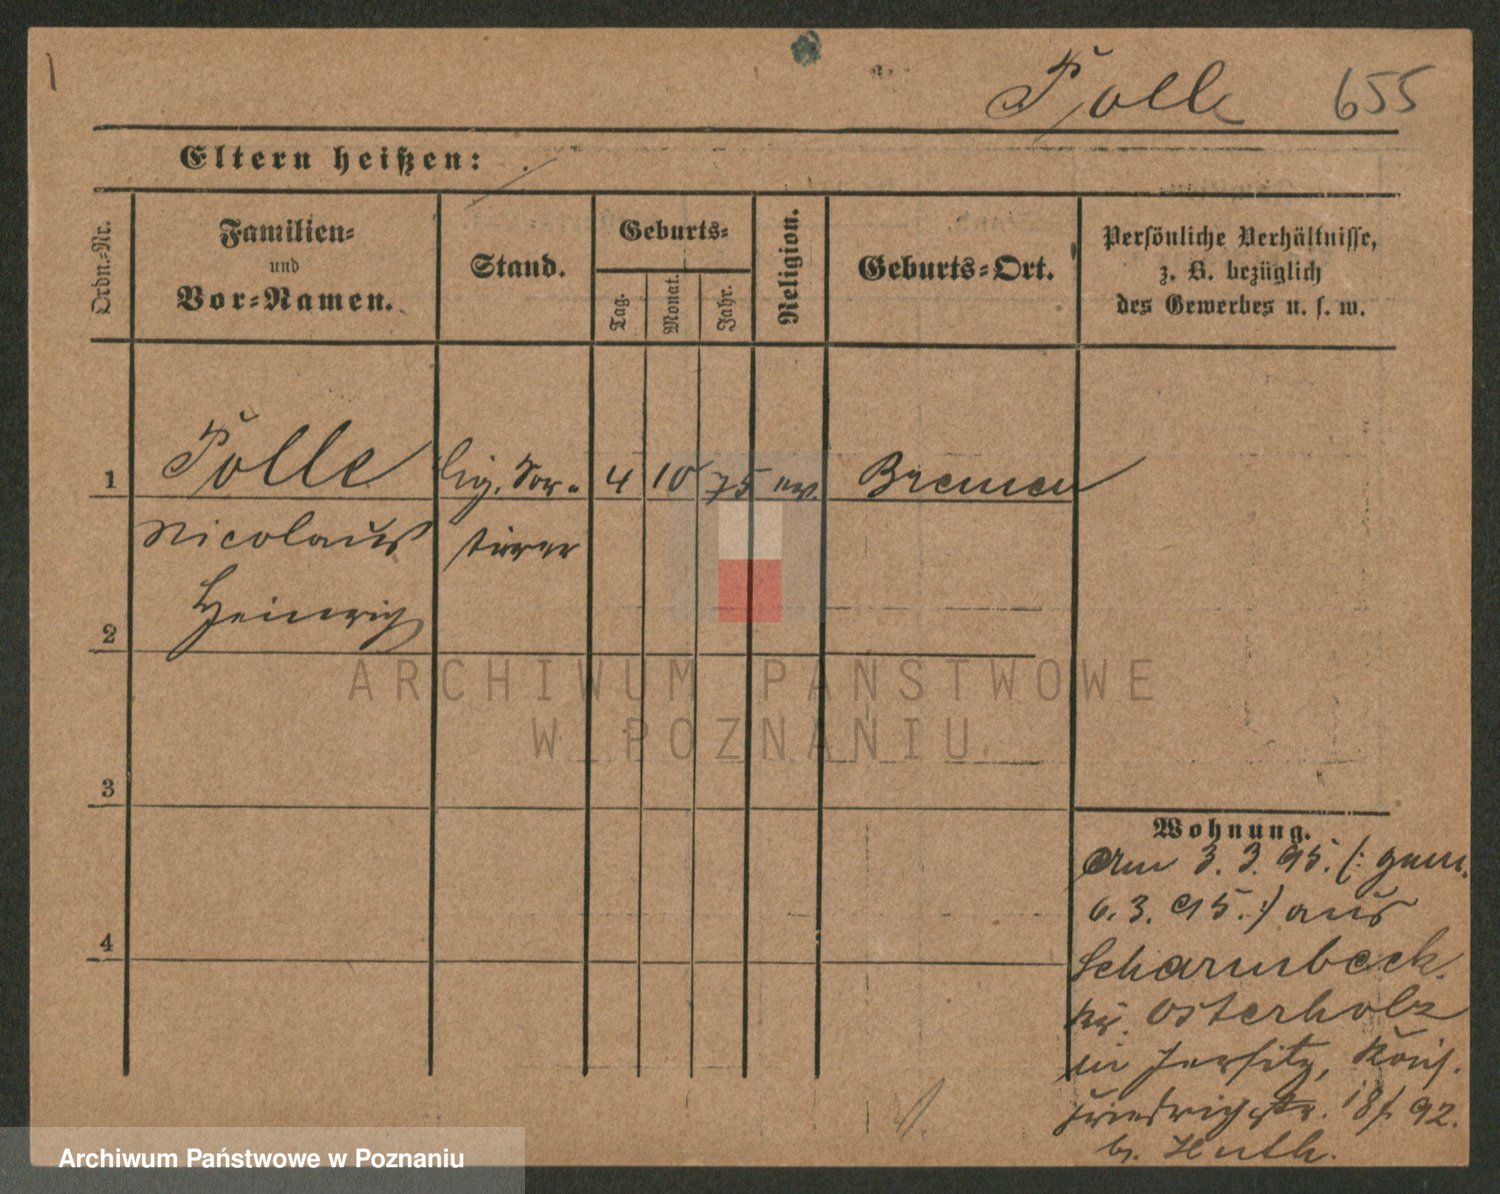 Tolle 655
Eltern heißen:
Ordn.=Nr.
Familien=
und
Vor=Namen.
Stand.
Geburts=
Tag.
Monat.
Jahr.
Religion.
Geburts=Ort.
Persönliche Verhältnisse,
z. B. bezüglich
des Gewerbes u. s. w.
1 Tolle Cig. Sor- 4 10 75 ev. Bremen
Nicolaus tirer
2 Heinrich
3
4
Wohnung.
Am 3.3.95. (: gem.
6.3.95.:) aus
Scharmbeck.
Kr. Osterholz
in Jersitz,
friedrichstr. 92.
b. Huth.
ARCHIWUM PAŃSTWOWE
W POZNANIU
Archiwum Państwowe w Poznaniu